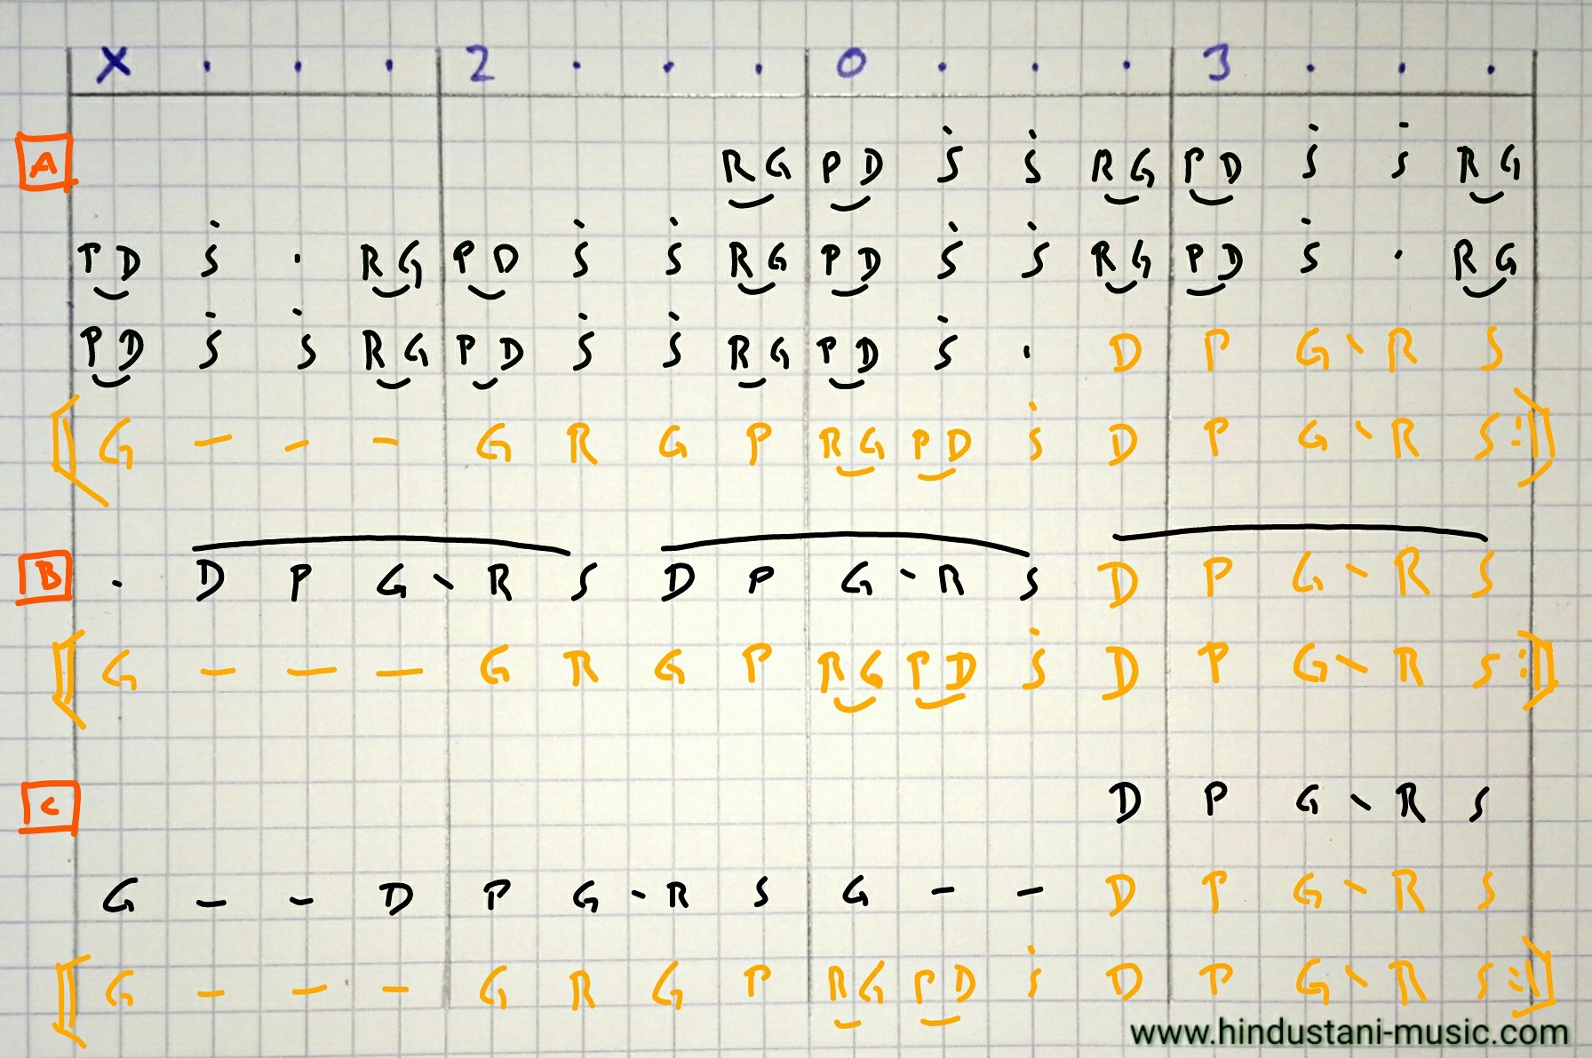 X . . . 2 . . . 0 . . . 3 . . .
A RG PD Ṡ Ṡ RG PD Ṡ Ṡ RG
PD Ṡ . RG PD Ṡ Ṡ RG PD Ṡ Ṡ RG PD Ṡ . RG
PD Ṡ Ṡ RG PD Ṡ Ṡ RG PD Ṡ . D P G \ R S
[[ G – – – G R G P RG PD Ṡ D P G \ R S :]]
B . D P G \ R S D P G \ R S D P G \ R S
[[ G – – – G R G P RG PD Ṡ D P G \ R S :]]
C D P G \ R S
G – – D P G \ R S G – – D P G \ R S
[[ G – – – G R G P RG PD Ṡ D P G \ R S :]]
www.hindustani-music.com